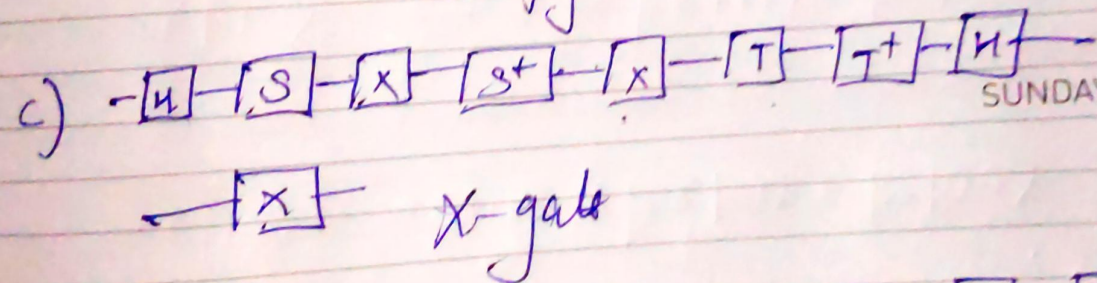 c) H S X S+ X T T+ H
SUNDAY
X X-gate